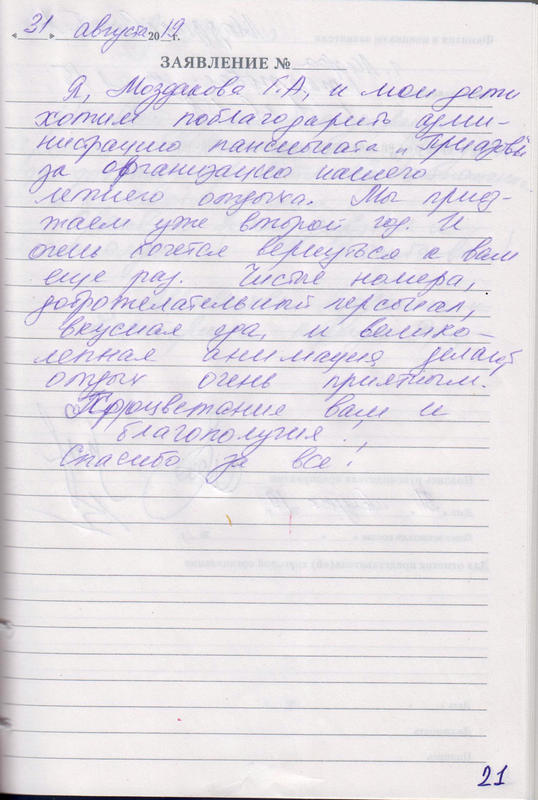 « 31 » августа 2019 г.
ЗАЯВЛЕНИЕ №
Я, Моздакова Г.А, и мои дети
хотим поблагодарить адми-
нистрацию пансионата "Приазовье
за организацию нашего
летнего отдыха. Мы приез-
жаем уже второй год. И
очень хочется вернуться к вам
еще раз. Чистые номера,
доброжелательный персонал,
вкусная еда, и велико-
лепная анимация делают
отдых очень приятным.
Процветание вам и
благополучия!,
Спасибо за все!
21